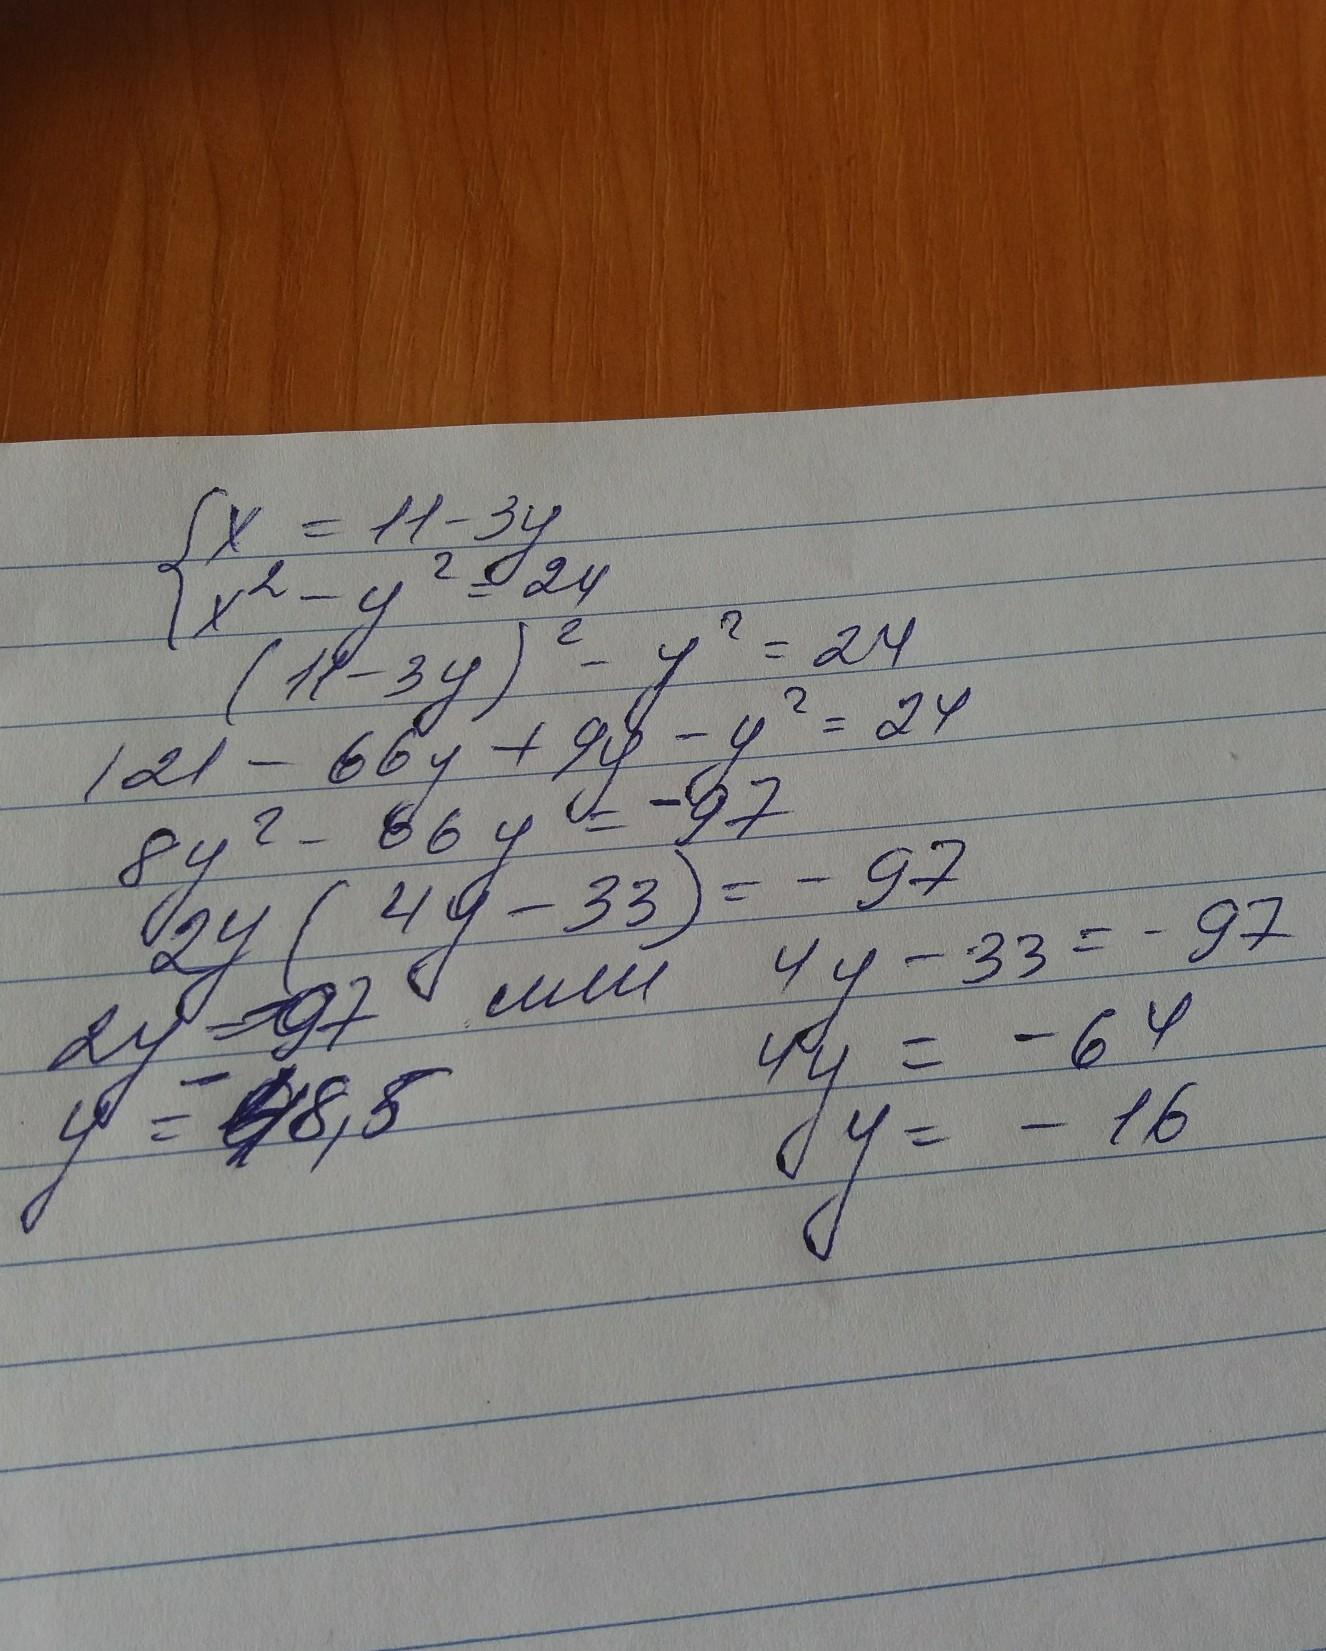 { x = 11 - 3y
x² - y² = 24
(11 - 3y)² - y² = 24
121 - 66y + 9y - y² = 24
8y² - 66y = -97
2y (4y - 33) = - 97
2y = -97 или 4y - 33 = - 97
y = -48,5 4y = - 64
y = - 16